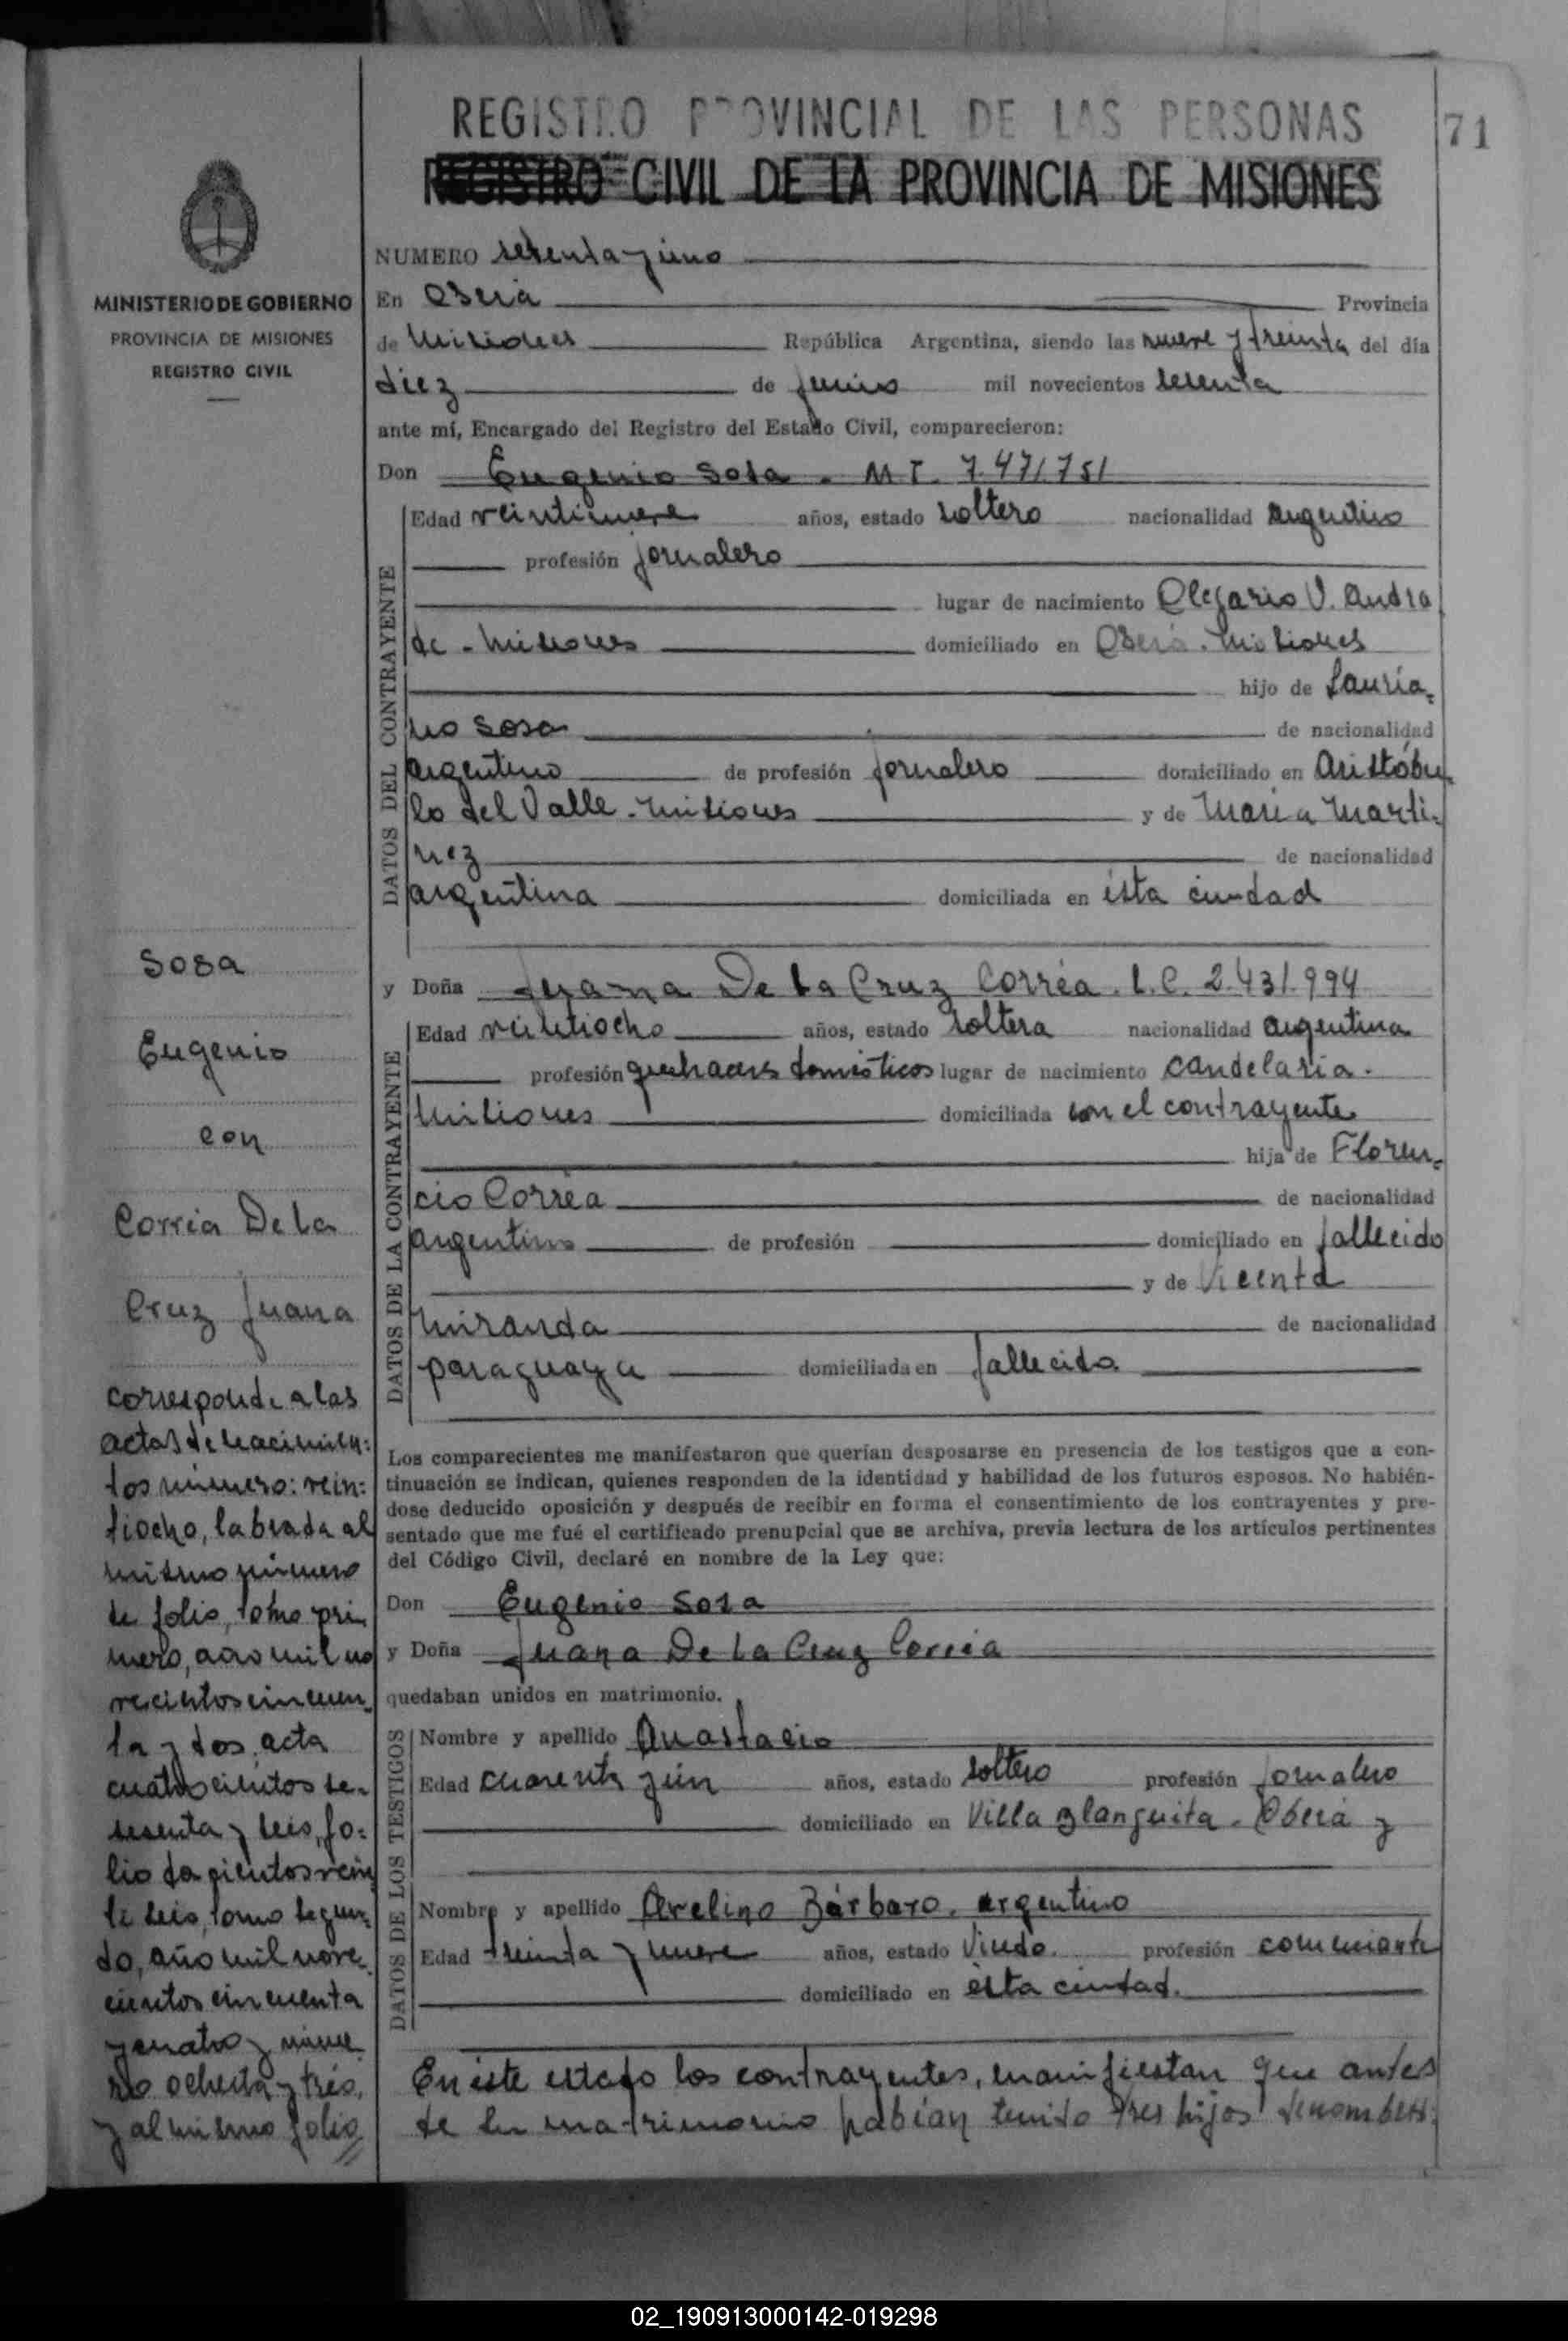 REGISTRO PROVINCIAL DE LAS PERSONAS
71
REGISTRO CIVIL DE LA PROVINCIA DE MISIONES
MINISTERIO DE GOBIERNO
PROVINCIA DE MISIONES
REGISTRO CIVIL
NUMERO setenta y uno
En Oberá Provincia
de Misiones República Argentina, siendo las nueve y treinta del día
diez de junio mil novecientos sesenta
ante mí, Encargado del Registro del Estado Civil, comparecieron:
Don Eugenio Sosa. M I. 7.471.751
DATOS DEL CONTRAYENTE
Edad veintinueve años, estado soltero nacionalidad argentino
profesión jornalero
lugar de nacimiento Olegario V. Andra
de - Misiones domiciliado en Oberá. Misiones
hijo de Lauria-
no Sosa de nacionalidad
argentino de profesión jornalero domiciliado en Aristóbu-
lo del Valle. Misiones y de María Martí-
nez de nacionalidad
argentina domiciliada en ésta ciudad
y Doña Juana De La Cruz Correa. L.C. 2.431.994
DATOS DE LA CONTRAYENTE
Edad veintiocho años, estado soltera nacionalidad argentina
profesión quehaceres domésticos lugar de nacimiento Candelaria.
Misiones domiciliada con el contrayente
hija de Floren-
cio Correa de nacionalidad
argentino de profesión domiciliado en fallecido
y de Vicenta
Miranda de nacionalidad
paraguaya domiciliada en fallecida
Los comparecientes me manifestaron que querían desposarse en presencia de los testigos que a con-
tinuación se indican, quienes responden de la identidad y habilidad de los futuros esposos. No habién-
dose deducido oposición y después de recibir en forma el consentimiento de los contrayentes y pre-
sentado que me fué el certificado prenupcial que se archiva, previa lectura de los artículos pertinentes
del Código Civil, declaré en nombre de la Ley que:
Don Eugenio Sosa
y Doña Juana De La Cruz Correa
quedaban unidos en matrimonio.
DATOS DE LOS TESTIGOS
Nombre y apellido Anastacio
Edad cuarenta y un años, estado soltero profesión jornalero
domiciliado en Villa Blanquita. Oberá y
Nombre y apellido Avelino Bárbaro. argentino
Edad treinta y nueve años, estado Viudo. profesión comerciante
domiciliado en ésta ciudad.
En éste estado los contrayentes, manifiestan que antes
de su matrimonio habían tenido tres hijos denombres:
Sosa
Eugenio
con
Correa De La
Cruz Juana
corresponde a las
actas de nacimien:
tos número: vein:
tiocho, labrada al
mismo número
de folio, tomo pri
mero, año mil no
vecientos cincuen
ta y dos, acta
cuatrocientos se-
senta y seis, fo:
lio doscientos vein
te seis, tomo segun-
do, año mil nove-
cientos cincuenta
y cuatro y núme
ro ochenta y tres,
y al mismo folio
02_190913000142-019298